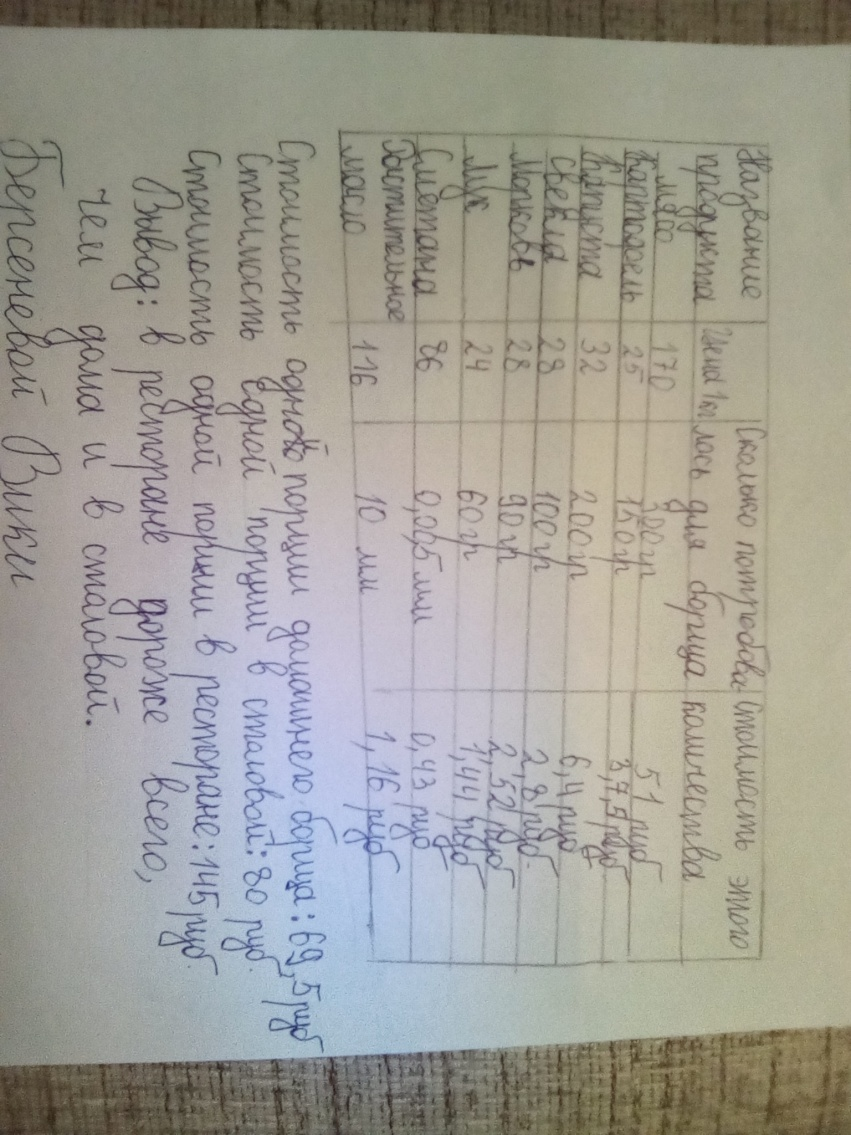 Название продукта | Цена 1кг | Сколько потребова-лось для борща | Стоимость этого количества
мясо | 170 | 300гр | 51 руб
Картофель | 25 | 150гр | 3,75 руб
Капуста | 32 | 200гр | 6,4 руб
свекла | 28 | 100гр | 2,8 руб.
Морковь | 28 | 90гр | 2,52 руб
Лук | 24 | 60гр | 1,44 руб
Сметана | 86 | 0,005мл | 0,43 руб
Растительное масло | 116 | 10 мл | 1,16 руб
Стоимость одной порции домашнего борща: 69,5руб
Стоимость одной порции в столовой: 80 руб.
Стоимость одной порции в ресторане: 145 руб.
Вывод: в ресторане дороже всего,
чем дома и в столовой.
Берсеневой Вики